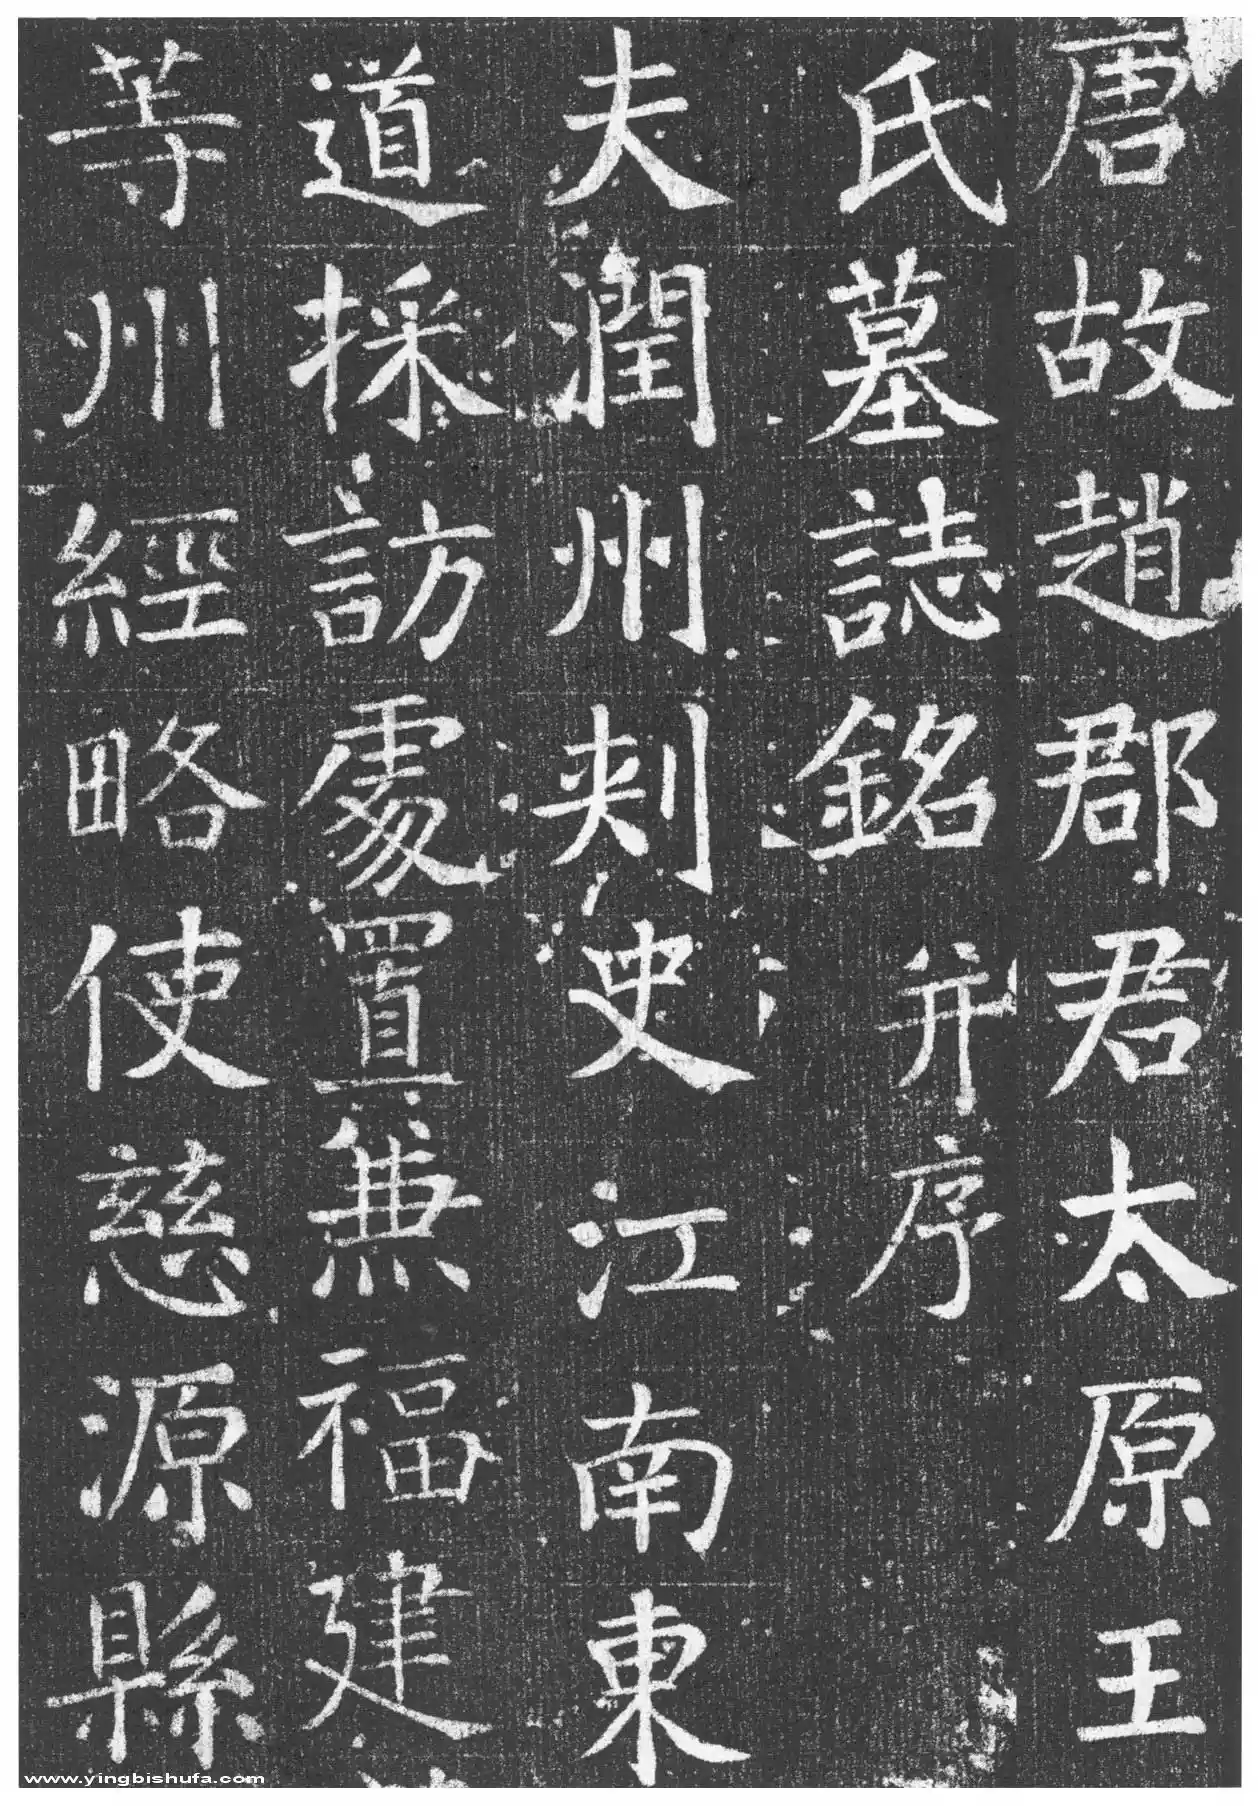 唐故趙郡君太原王
氏墓誌銘并序
夫潤州刾史江南東
道採訪處置兼福建
等州經略使慈源縣
www.yingbishufa.com